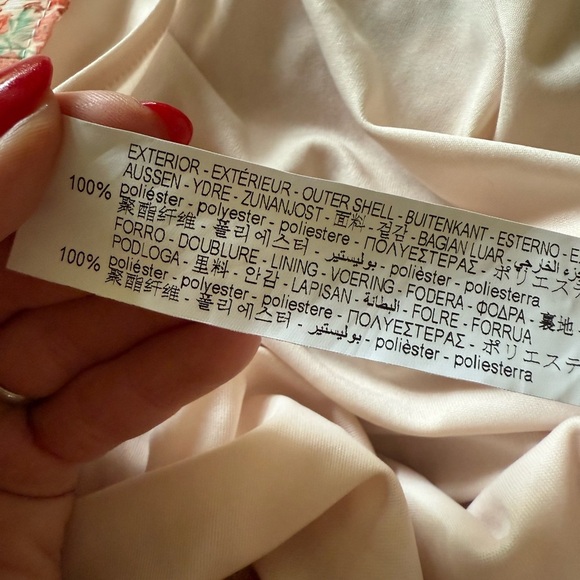 EXTERIOR - EXTÉRIEUR - OUTER SHELL - BUITENKANT - ESTERNO -
AUSSEN - YDRE - ZUNANJOST - 面料 - 겉감 - BAGIAN LUAR -
100% poliéster - polyester - poliestere - ΠΟΛΥΕΣΤΕΡΑΣ - ポリエステ
聚酯纤维 - 폴리에스터 - بوليستير - polièster - poliesterra
FORRO - DOUBLURE - LINING - VOERING - FODERA - ΦΟΔΡΑ - 裏地
PODLOGA - 里料 - 안감 - LAPISAN - البطانة - FOLRE - FORRUA
100% poliéster - polyester - poliestere - ΠΟΛΥΕΣΤΕΡΑΣ - ポリエステ
聚酯纤维 - 폴리에스터 - بوليستير - polièster - poliesterra